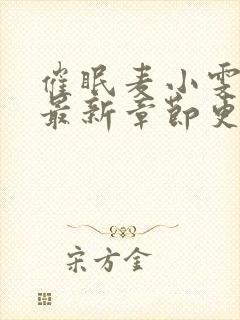 催眠麦小雯
最新章节更
宋方金